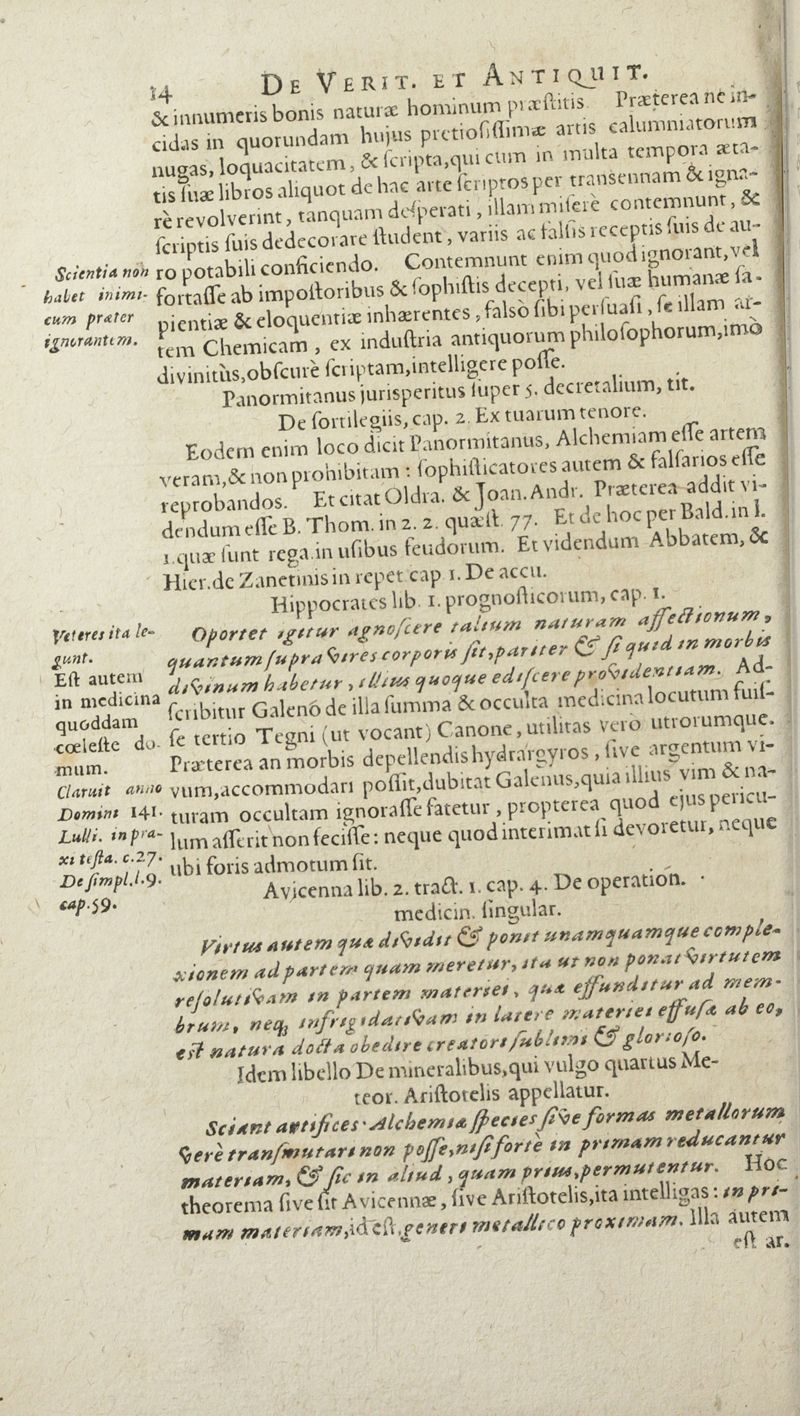 14 DE VERIT. ET ANTIQUIT.
& innumeris bonis naturæ hominum præſtitis. Præterea ne in-
cidas in quorundam hujus pretioſiſſimæ artis calumniatorum
nugas, loquacitatem, & ſcripta, qui cum in multa tempora æta-
tis ſuæ libros aliquot de hac arte ſcriptos per transennam & igna-
rè revolverint, tanquam deſperati, illam miſerè contemnunt, &
ſcriptis ſuis dedecorare ſtudent, variis ac falſis receptis ſuis de au-
Scientia non
habet inimi-
cum præter
ignorantem.
ro potabili conficiendo. Contemnunt enim quod ignorant, vel
fortaſſe ab impoſtoribus & ſophiſtis decepti, vel ſuæ humanæ ſa-
pientiæ & eloquentiæ inhærentes, falsò ſibi perſuaſi, ſe illam ar-
tem Chemicam, ex induſtria antiquorum philoſophorum, imò
divinitùs, obſcurè ſcriptam, intelligere poſſe.
Panormitanus jurisperitus ſuper 5. decretalium, tit.
De ſortilegiis, cap. 2. Ex tuarum tenore.
Eodem enim loco dicit Panormitanus, Alchemiam eſſe artem
veram, & non prohibitam: ſophiſticatores autem & falſarios eſſe
reprobandos. Et citat Oldra. & Joan. Andr. Præterea addit vi-
dendum eſſe B. Thom. in 2. 2. quæſt. 77. Et de hoc per Bald. in l.
1. quæ ſunt rega. in uſibus feudorum. Et videndum Abbatem, &
Hier. de Zanetinis in repet cap 1. De accu.
Hippocrates lib. 1. prognoſticorum, cap. 1.
Veteres ita le-
gunt.
Eſt autem
in medicina
quoddam
cœleſte do-
mum.
Oportet igitur agnoſcere talium naturam affectionum,
quantum ſupra vires corporis ſit, pariter & ſi quid in morbis
divinum habetur, illius quoque ediſcere providentiam. Ad-
ſcribitur Galenó de illa ſumma & occulta medicina locutum fuiſ-
ſe tertio Tegni (ut vocant) Canone, utilitas vero utrorumque.
Præterea an morbis depellendis hydrargyros, ſive argentum vi-
Claruit anno
Domini 141.
Lulli. in pra-
xi teſta. c. 27.
De ſimpl. l. 9.
cap. 59.
vum, accommodari poſſit, dubitat Galenus, quia illius vim & na-
turam occultam ignoraſſe fatetur, propterea quod ejus pericu-
lum aſſerit non feciſſe: neque quod interimat ſi devoretur, neque
ubi foris admotum ſit.
Avicenna lib. 2. tract. 1. cap. 4. De operation.
medicin. ſingular.
Virtus autem quæ dividit & ponit unamquamque comple-
xionem ad partem quam meretur, ita ut non ponat virtutem
reſolutivam in partem materiei, quæ effunditur ad mem-
brum, neq; infrigidativam in latere materiei effuſæ ab eo,
eſt natura docta obedire creatori ſublimi & glorioſo.
Idem libello De mineralibus, qui vulgo quartus Me-
teor. Ariſtotelis appellatur.
Sciant artifices Alchemiæ ſpecies ſive formas metallorum
verè tranſmutari non poſſe, niſi fortè in primam reducantur
materiam, & ſic in aliud, quam prius, permutentur. Hoc
theorema ſive ſit Avicennæ, ſive Ariſtotelis, ita intelligas: in pri-
mam materiam, id eſt, generi metallico proximam. Illa autem
eſt ar.